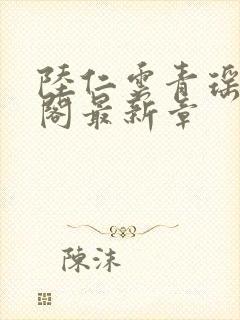 陸仁雲青瑶
閣最新章
陳沫